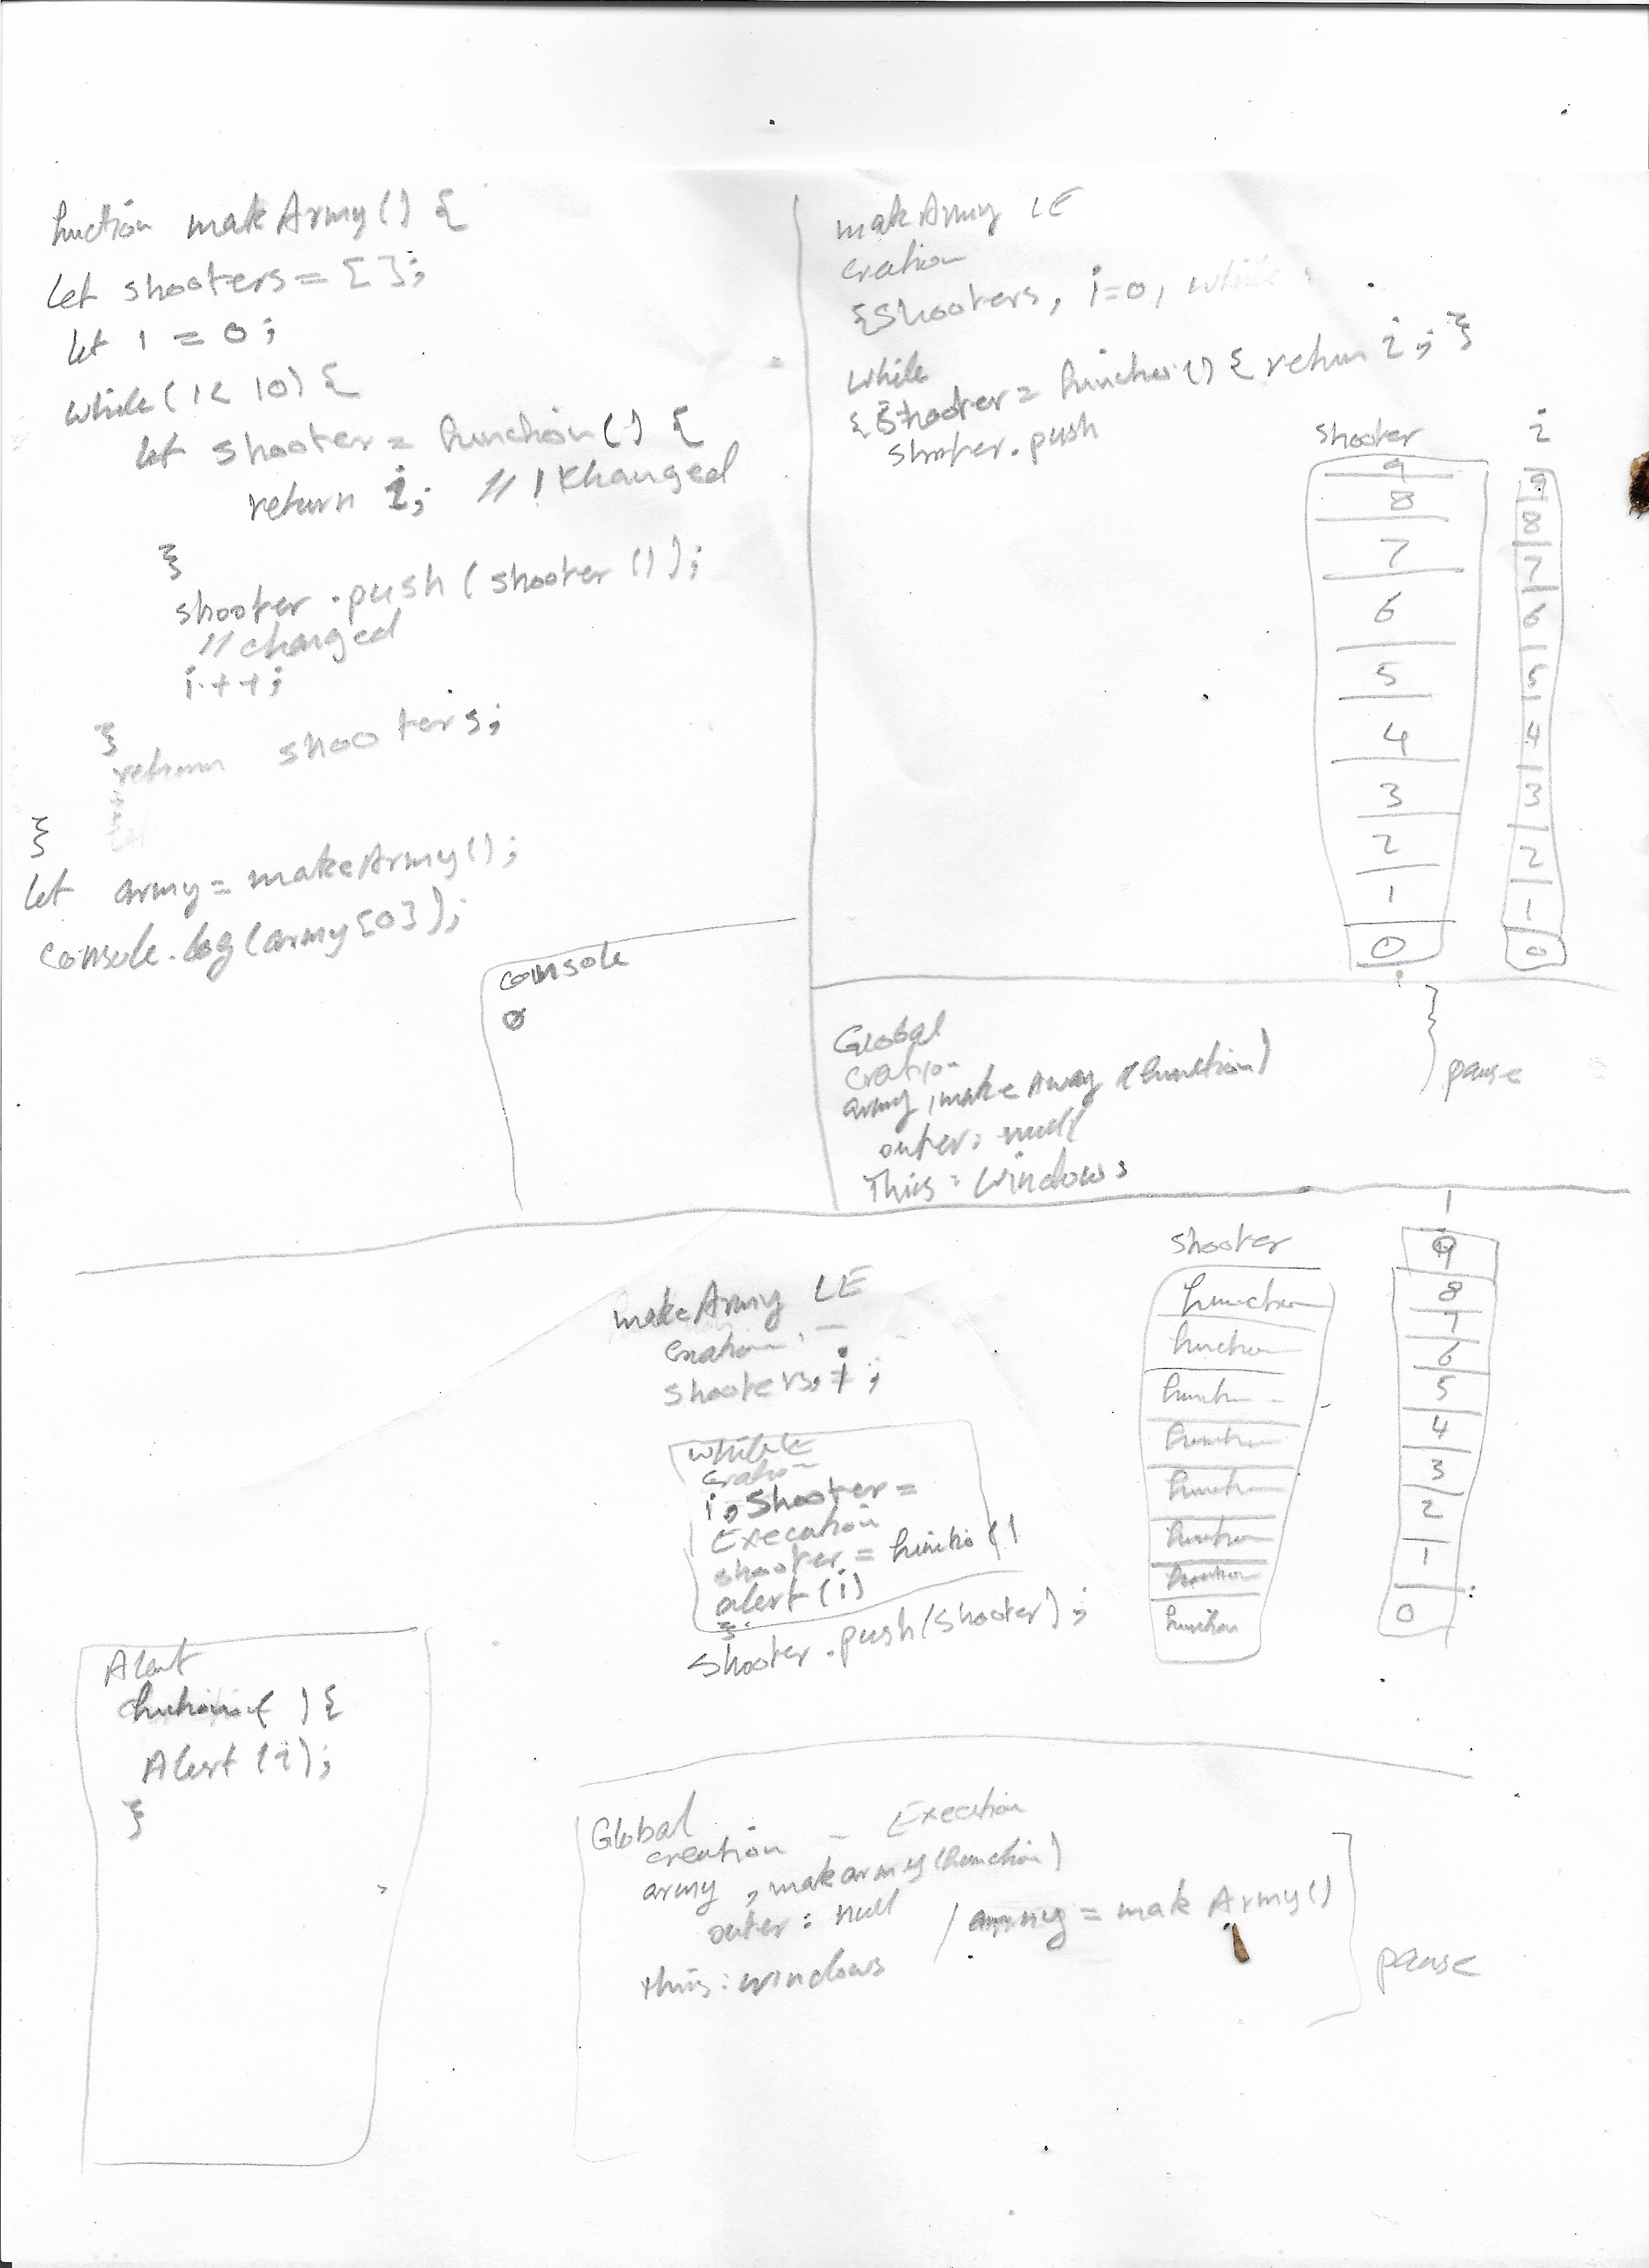 function makArmy() {
let shooters = [];
let i = 0;
while (i < 10) {
let shooter = function() {
return i; // changed
}
shooter.push(shooter());
// changed
i++;
}
return shooters;
}
let army = makeArmy();
console.log(army[0]);
console
0
makArmy LE
cration
{shooters, i=0, while
while
{ shooter = function() { return i; }
shooter.push
shooter
9
8
7
6
5
4
3
2
1
0
i
9
8
7
6
5
4
3
2
1
0
Global
cration
army, make Army (function)
outer: null
This: windows
pause
makeArmy LE
cration
shooters, i;
while
cration
i, shooter =
Execation
shooter = functio()
alert(i)
}
shooter.push(shooter);
shooter
function
function
function
function
function
function
function
function
i
9
8
7
6
5
4
3
2
1
0
Alert
function( ) {
Alert(i);
}
Global
creation - Execution
army, makarmy(function)
outer: null / army = mak Army()
this: windows
pause